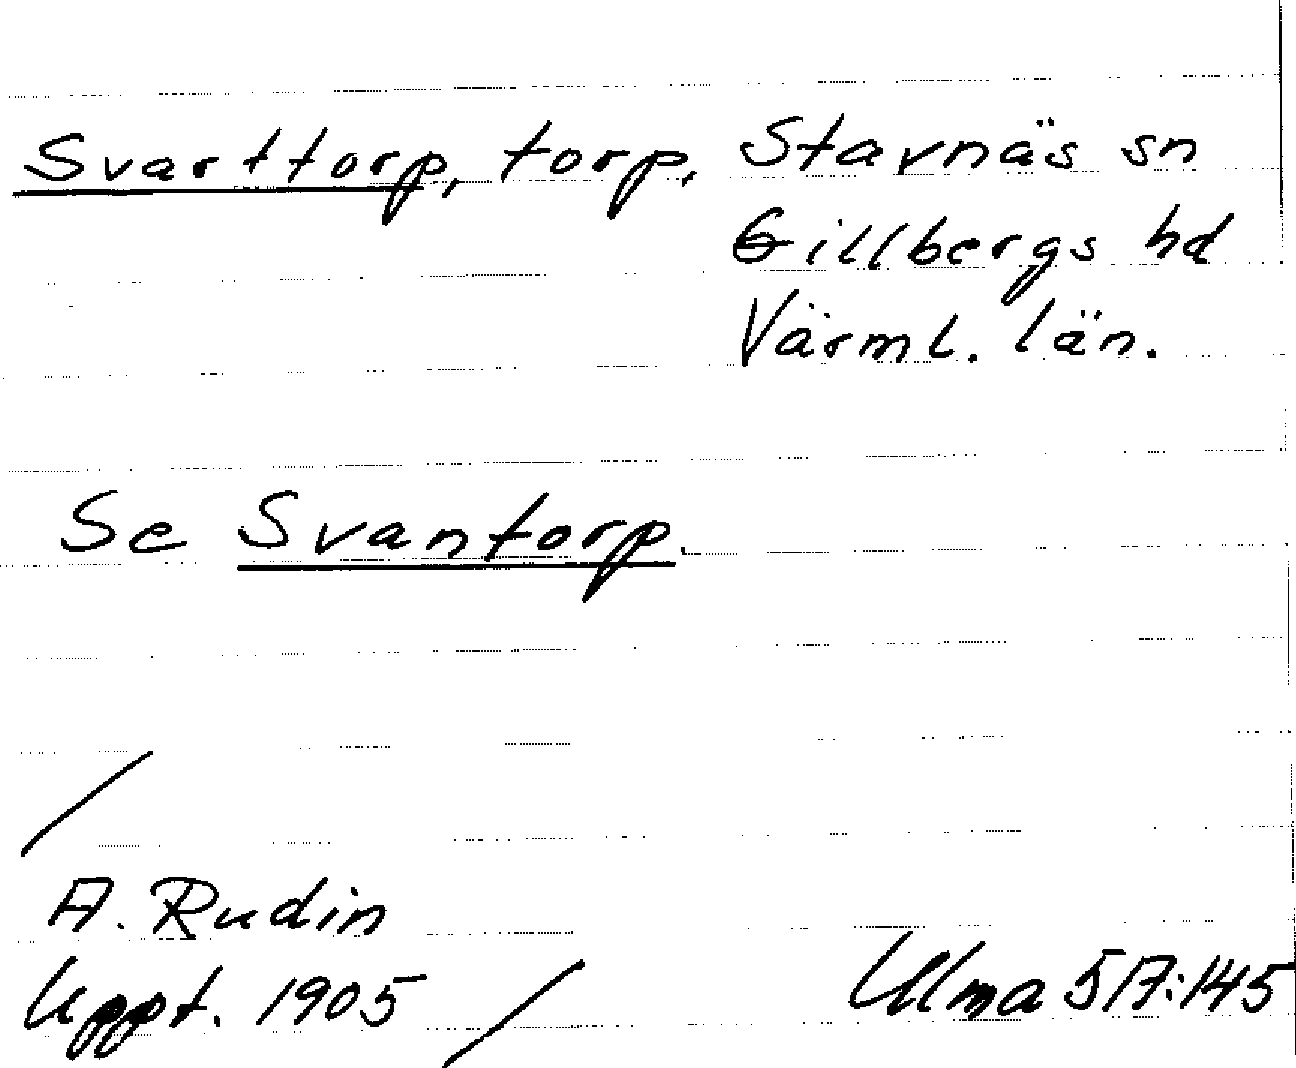 Svarttorp, torp, Stavnäs sn
Gillbergs hd
Värml. län.
Se Svantorp.
A. Rudin
Uppt. 1905
Ulma 517:145